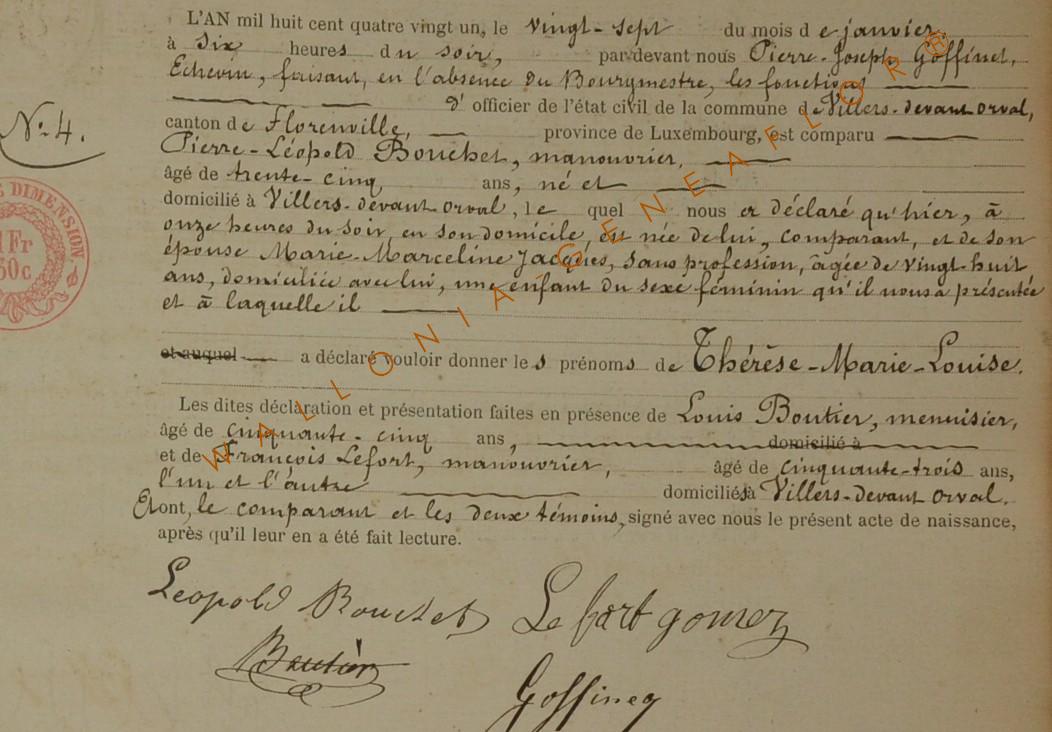 L'AN mil huit cent quatre vingt un, le vingt-sept du mois d e janvier,
à six heures du soir, par-devant nous Pierre-Joseph Goffinet,
Echevin, faisant, en l'absence du Bourgmestre, les fonctions
d' officier de l'état civil de la commune de Villers-devant-Orval,
N° 4.
canton de Florenville, province de Luxembourg, est comparu
Pierre-Léopold Bouchet, manouvrier,
âgé de trente-cinq ans, né et
domicilié à Villers-devant Orval, le quel nous a déclaré qu'hier, à
onze heures du soir, en son domicile, est née de lui, comparant, et de son
épouse Marie-Marceline Jacques, sans profession, âgée de vingt-huit
ans, domiciliée avec lui, une enfant du sexe féminin qu'il nous a présentée
et à laquelle il
et auquel a déclaré vouloir donner les prénoms de Thérèse-Marie-Louise.
Les dites déclaration et présentation faites en présence de Louis Boutier, menuisier,
âgé de cinquante-cinq ans, domicilié à
et de François Lefort, manouvrier, âgé de cinquante-trois ans,
l'un et l'autre domiciliés à Villers-devant Orval.
Et ont, le comparant et les deux témoins, signé avec nous le présent acte de naissance,
après qu'il leur en a été fait lecture.
Leopold Bouchet Lefort gomez
Boutier
Goffinet
DIMENSION
1 Fr
50c
WALLONIA GENEAFLOR®